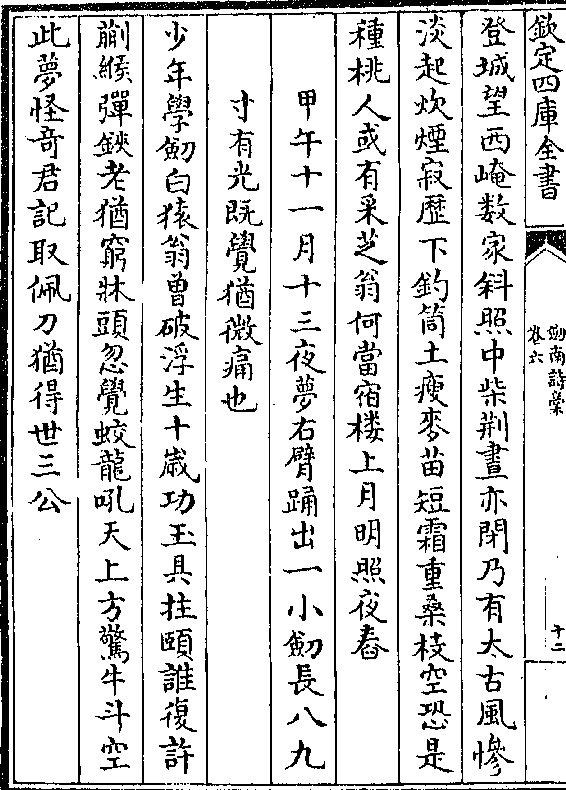 欽定四庫全書
劒南詩稾
卷六
十二
登城望西崦数家斜照中柴荆晝亦閉乃有太古風慘
淡起炊煙寂歴下釣筒土瘦麥苗短霜重桑枝空恐是
種桃人或有采芝翁何當宿楼上月明照夜舂
甲午十一月十三夜夢右臂踊出一小劒長八九
寸有光既覺猶微痛也
少年學劒白猿翁曽破浮生十歳功玉具拄頤誰復許
蒯緱彈鋏老猶窮牀頭忽覺蛟龍吼天上方驚牛斗空
此夢怪奇君記取佩刀猶得世三公